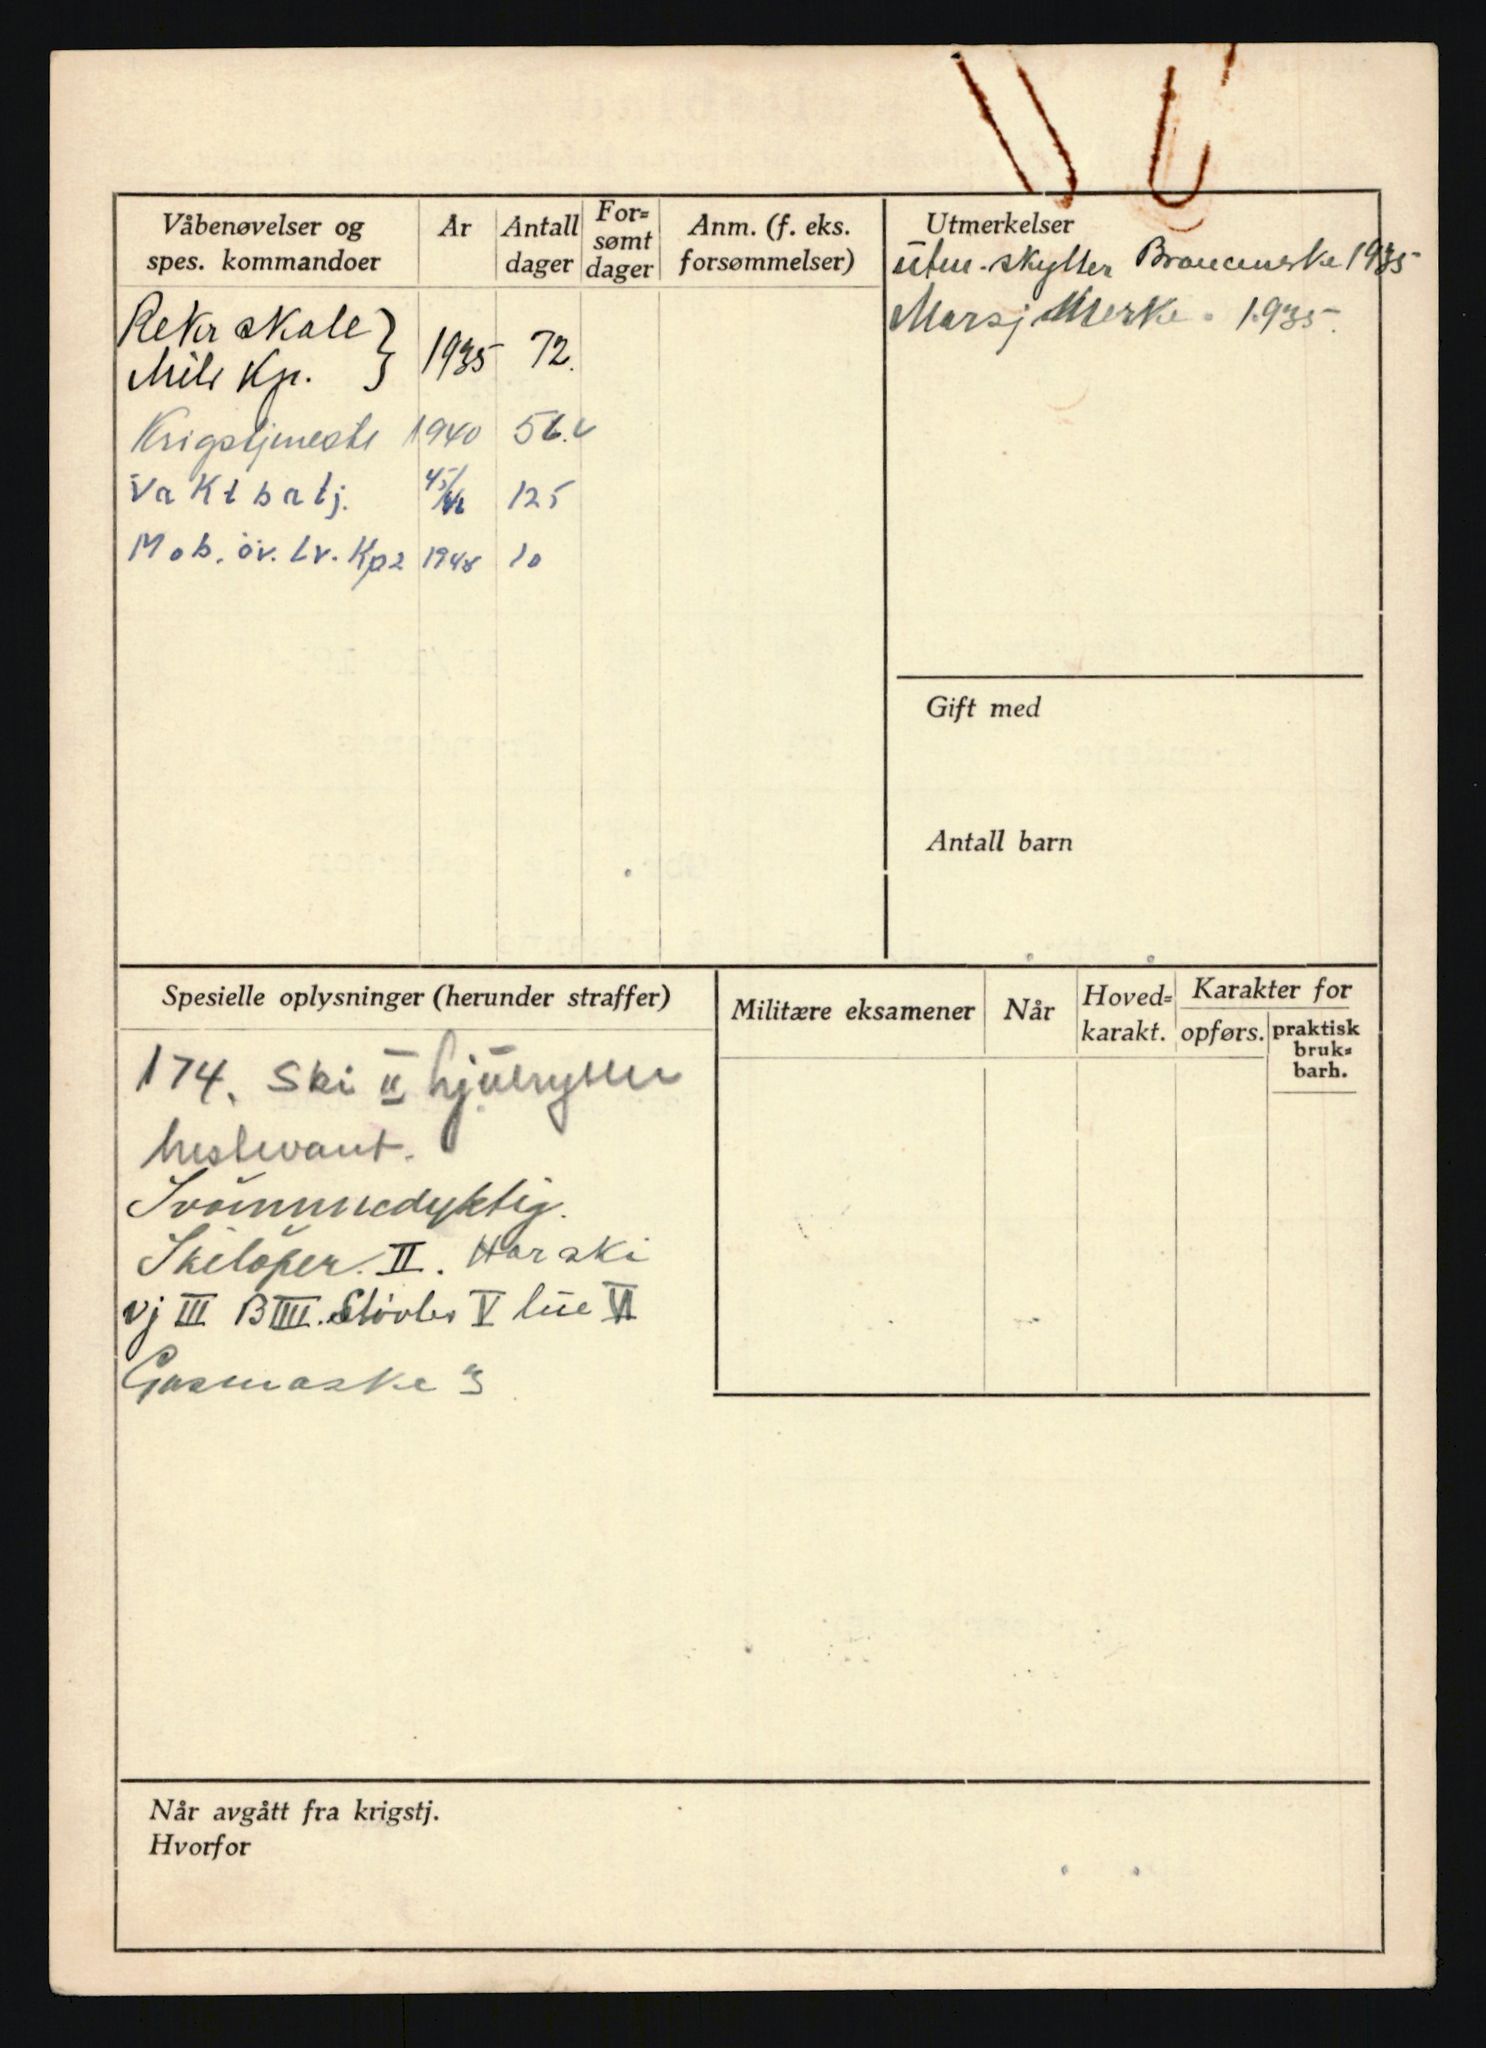 Våbenøvelser og
spes. kommandoer
År
Antall
dager
For=
sømt
dager
Anm. (f. eks.
forsømmelser)
Rekr skole
Mitr Kp. } 1935 72.
Krigstjeneste 1940 56.
Vaktbatj. 45/46 125
Mob. öv. Lv. Kp 2 1948 10
Utmerkelser
ütm. skytter Broncemerke 1935
Marsj Merke. 1935.
Gift med
Antall barn
Spesielle oplysninger (herunder straffer)
174. Ski II hjülrytter
hestevant.
Svömmedyktig.
Skilöper. II. Har ski
vj III B IIII. Støvler V lüe VI
Gasmaske 3
Militære eksamener
Når
Hoved=
karakt.
Karakter for
opførs.
praktisk
bruk=
barh.
Når avgått fra krigstj.
Hvorfor